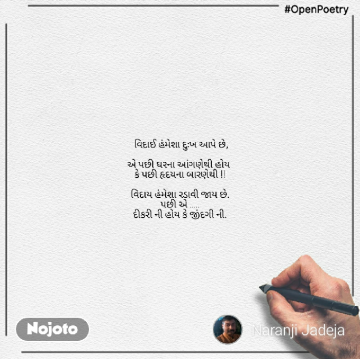 #OpenPoetry
વિદાઈ હંમેશા દુઃખ આપે છે,
એ પછી ઘરના આંગણેથી હોય
કે પછી હૃદયના બારણેથી !!
વિદાય હંમેશા રડાવી જાય છે.
પછી એ ....
દીકરી ની હોય કે જીંદગી ની.
Nojoto
Haranji Jadeja